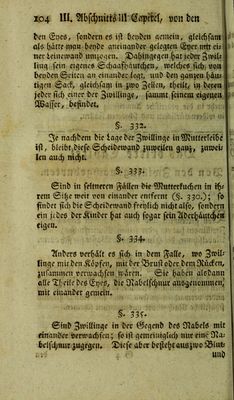 104 III. Abschnitts III Capitel, von den
den Eyes, sondern es ist beyden gemein, gleichsam
als hätte man beyde aneinander gelegten Eyer mit ei-
ner Leinewand umzogen. Dahingegen hat jeder Zwil-
ling sein eigenes Schaafhäutchen, welches sich, von
beyden Seiten an einander legt, und den ganzen häu-
tigen Sack, gleichsam in zwo Zellen, theilt, in deren
jeder sich einer der Zwillinge, sammt seinem eigenen
Wasser, befindet.
§. 332.
Je nachdem die Lage der Zwillinge in Mutterleibe
ist, bleibt diese Scheidewand zuweilen ganz, zuwei-
len auch nicht.
§. 333.
Sind in seltneren Fällen die Mutterkuchen in ih-
rem Sitze weit von einander entfernt (§. 330.); so
findet sich die Scheidewand freylich nicht also, sondern
ein jedes der Kinder hat auch sogar sein Aderhäutchen
eigen.
§. 334.
Anders verhält es sich in dem Falle, wo Zwil-
linge mit den Köpfen, mit der Brust oder dem Rücken,
zusammen verwachsen wären. Sie haben alsdann
alle Theile des Eyes, die Nabelschnur ausgenommen,
mit einander gemein.
§. 335.
Sind Zwillinge in der Gegend des Nabels mit
einander verwachsen; so ist gemeiniglich nur eine Na-
belschnur zugegen. Diese aber besteht aus zwo Blut-
und